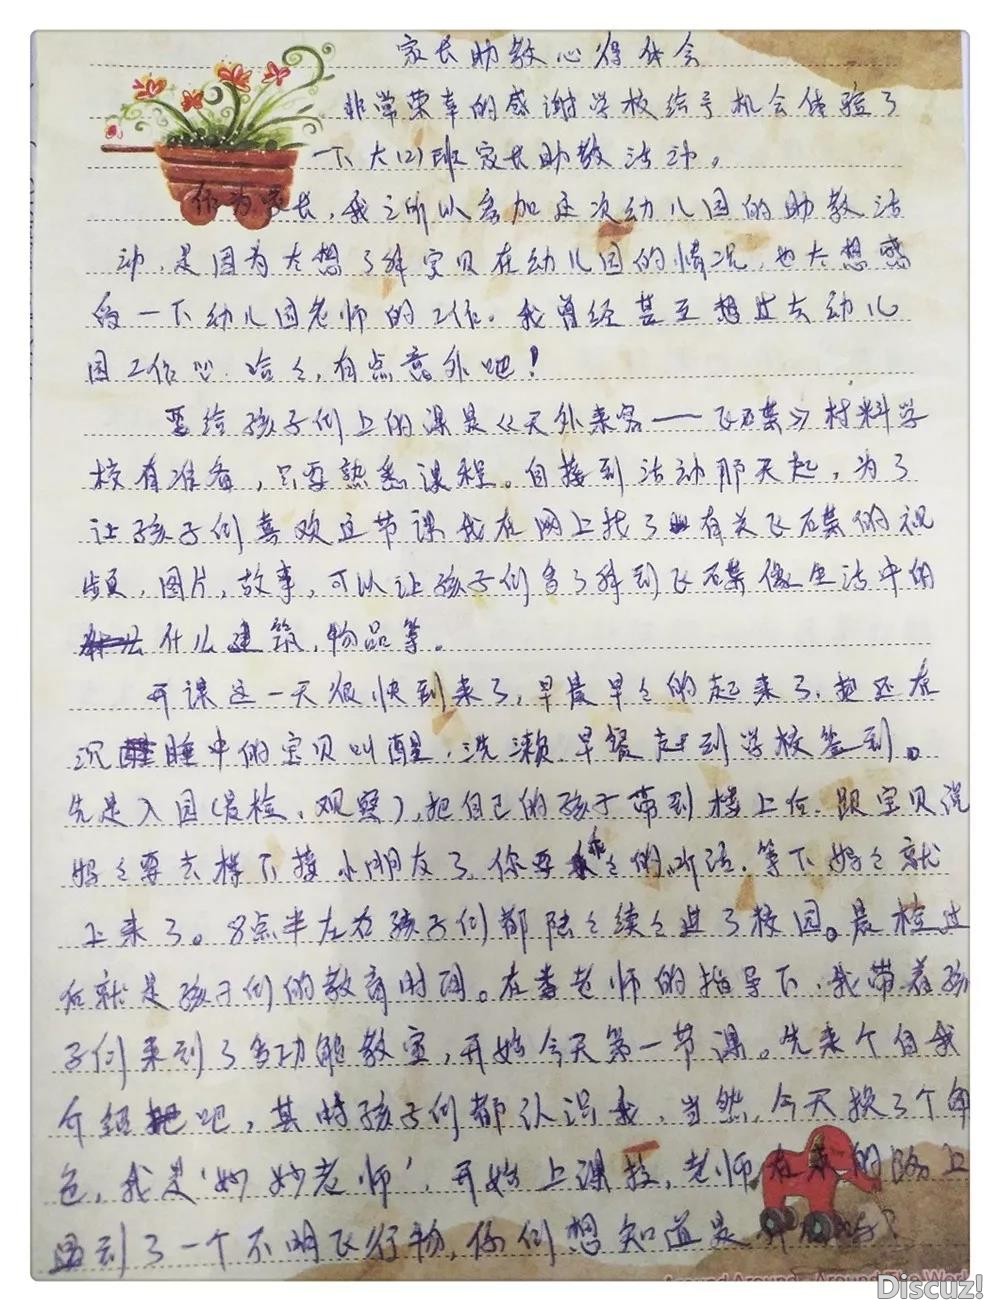 家长助教心得体会
非常荣幸的感谢学校给予机会体验了
一下大(2)班家长助教活动。
作为家长，我之所以参加这次幼儿园的助教活
动，是因为太想了解宝贝在幼儿园的情况，也太想感
受一下幼儿园老师的工作。我曾经甚至想过去幼儿
园工作，哈哈，有点意外吧！
要给孩子们上的课是《天外来客——飞碟》材料学
校有准备，只要熟悉课程。自接到活动那天起，为了
让孩子们喜欢这节课我在网上找了有关飞碟的视
频，图片，故事，可以让孩子们多了解到飞碟像生活中的
什么建筑，物品等。
开课这一天很快到来了，早晨早早的起来了，把还在
沉睡中的宝贝叫醒，洗漱，早餐，赶到学校签到。
先是入园(晨检、观察)，把自己的孩子带到楼上后，跟宝贝说
妈妈要去楼下接小朋友了，你要乖乖的听话，等下妈妈就
上来了。8点半左右孩子们都陆陆续续进了校园。晨检过
后就是孩子们的教育时间。在老师的指导下，我带着孩
子们来到了多功能教室，开始今天第一节课。先来个自我
介绍吧，其时孩子们都认识我，当然，今天换了个角
色，我是'妙妙老师'，开始上课拉，老师在来的路上
遇到了一个不明飞行物，你们想知道是
Around Around - Around The World
Discuz!